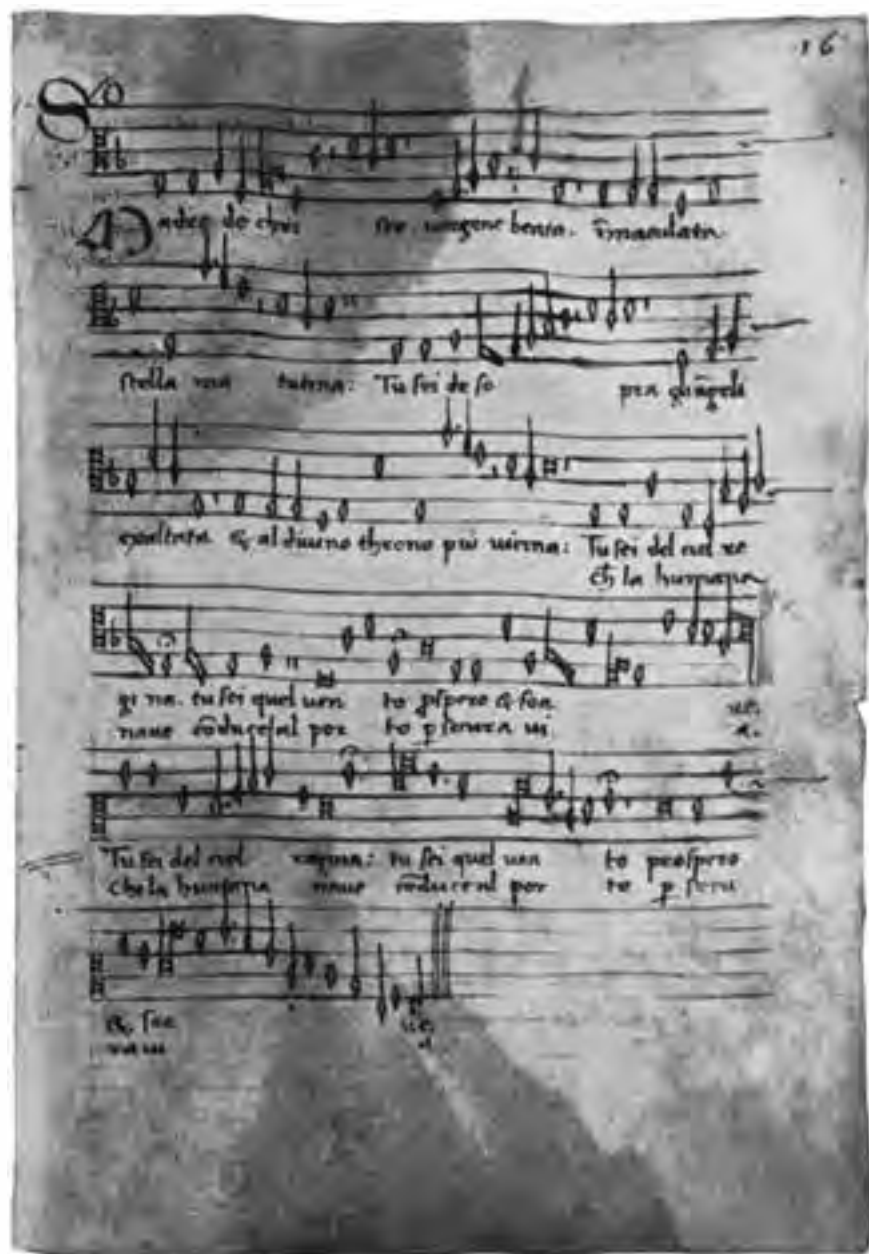 16
So
Madre de chri sto. uergene beata. Immaculata
stella ma tutina: Tu sei de so pra gli āgeli
exaltata & al diuino throno piu uicina: Tu sei del ciel re
ch la humana
gi na. tu sei quel uen to pspero & soa ue.
naue cōduce al por to p secura ui a.
Tu sei del ciel regina: tu sei quel uen to prospero
Che la humana naue cōduce al por to p secu
& soa ue.
ra ui a